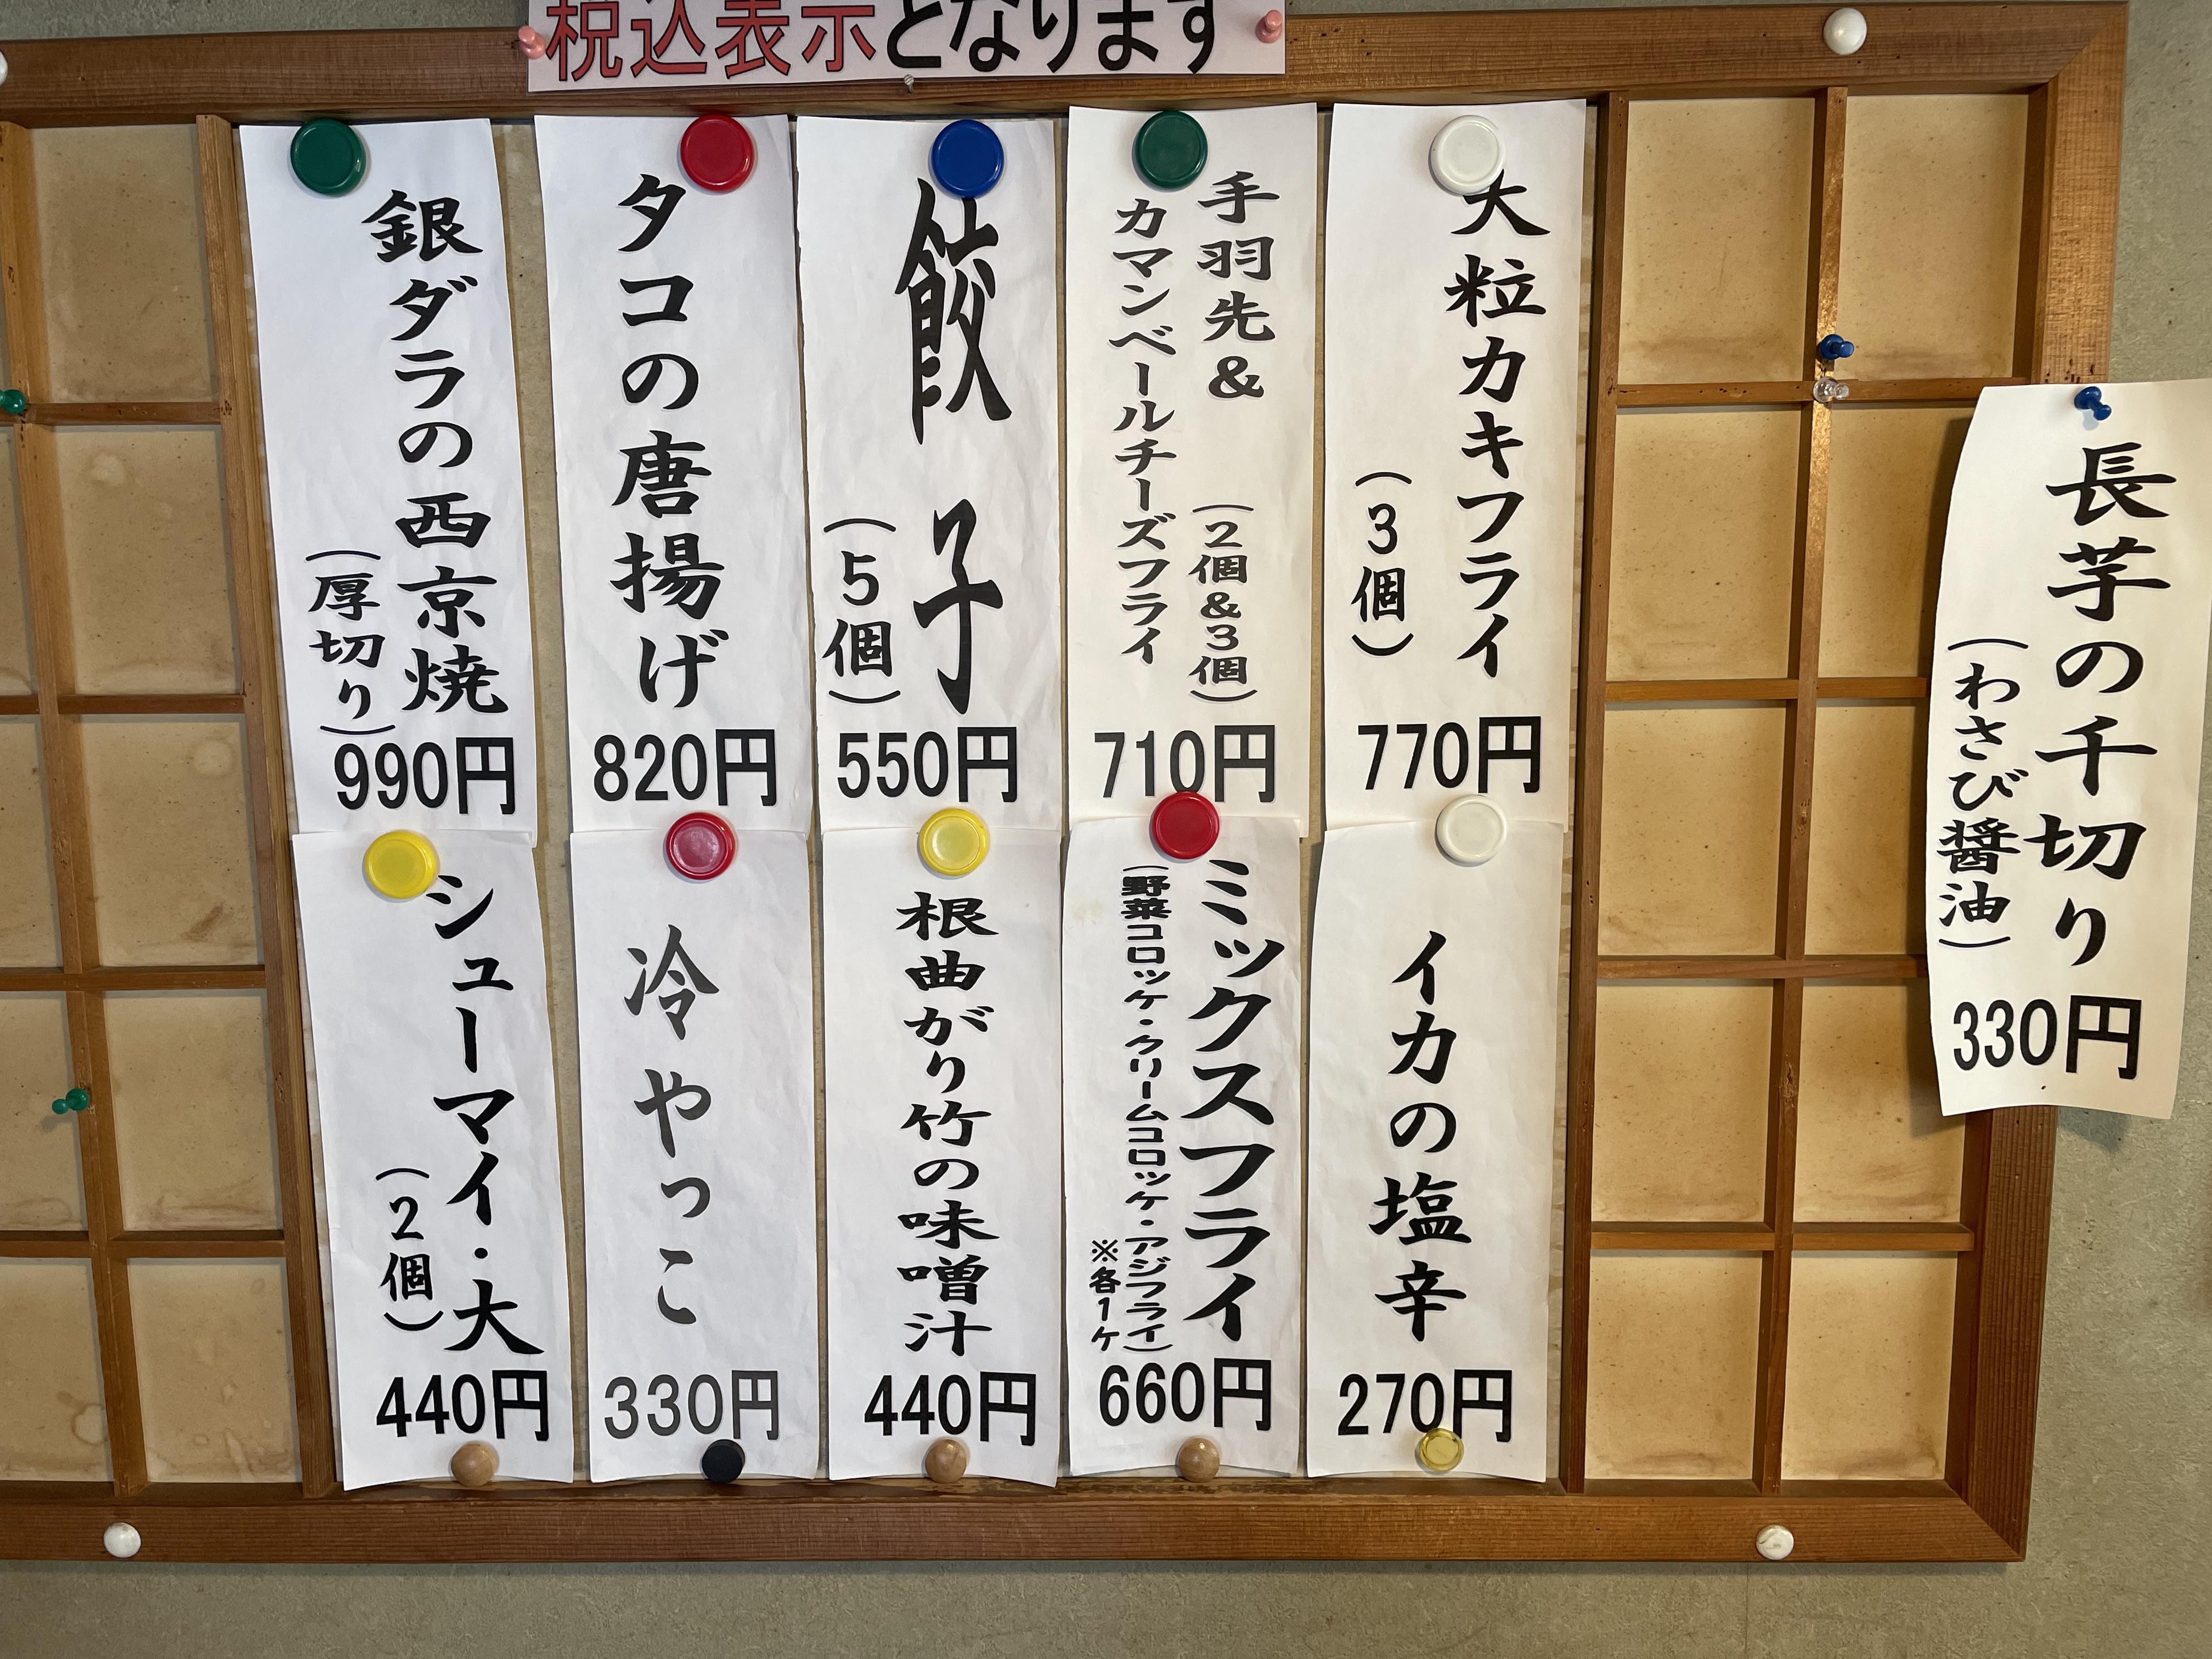 税込表示となります
長芋の千切り
(わさび醤油)
330円
大粒カキフライ
(3個)
770円
手羽先& (2個&3個)
カマンベールチーズフライ
710円
餃子
(5個)
550円
タコの唐揚げ
820円
銀ダラの西京焼
(厚切り)
990円
イカの塩辛
270円
ミックスフライ
(野菜コロッケ・クリームコロッケ・アジフライ)
※各1ケ
660円
根曲がり竹の味噌汁
440円
冷やっこ
330円
シューマイ・大
(2個)
440円